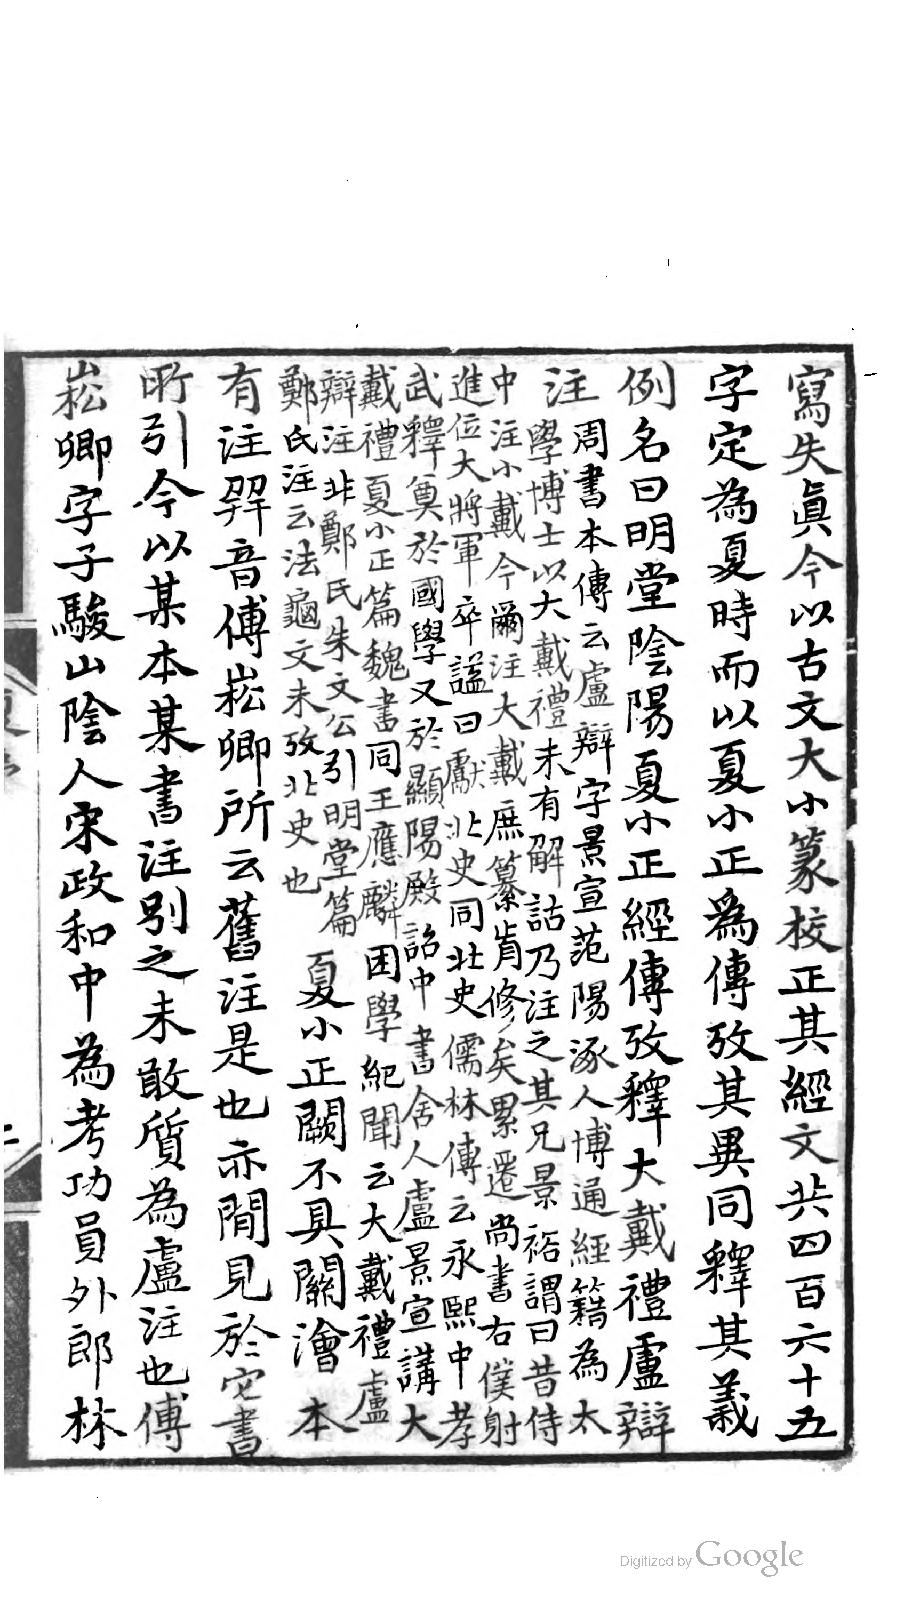 寫失眞今以古文大小篆校正其經文共四百六十五
字定為夏時而以夏小正為傳攷其異同釋其義
例名曰明堂陰陽夏小正經傳攷釋大戴禮盧辯
注
周書本傳云盧辯字景宣范陽涿人博通經籍為太
學博士以大戴禮未有解詁乃注之其兄景裕謂曰昔侍
中注小戴今爾注大戴庶纂前修矣累遷尚書右僕射
進位大將軍卒謚曰獻北史同北史儒林傳云永熙中孝
武釋奠於國學又於顯陽殿詔中書舍人盧景宣講大
戴禮夏小正篇魏書同王應麟困學紀聞云大戴禮盧
辯注非鄭氏朱文公引明堂篇
鄭氏注云法龜文未攷北史也
夏小正闕不具關澮本
有注羿音傅崧卿所云舊注是也亦閒見於它書
所引今以某本某書注別之未敢質為盧注也傅
崧卿字子駿山陰人宋政和中為考功員外郎林
Digitized by Google